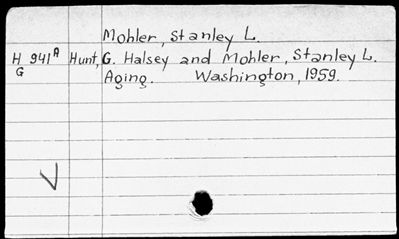 Mohler, Stanley L.
H 941A Hunt, G. Halsey and Mohler, Stanley L.
G Aging. Washington, 1959.